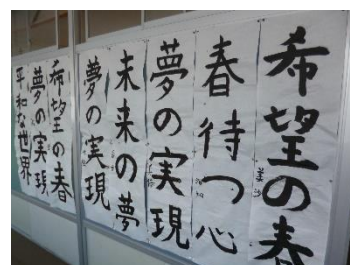 希望の春
春待つ心
夢の実現
未来の夢
夢の実現
希望の春
夢の実現
平和な世界